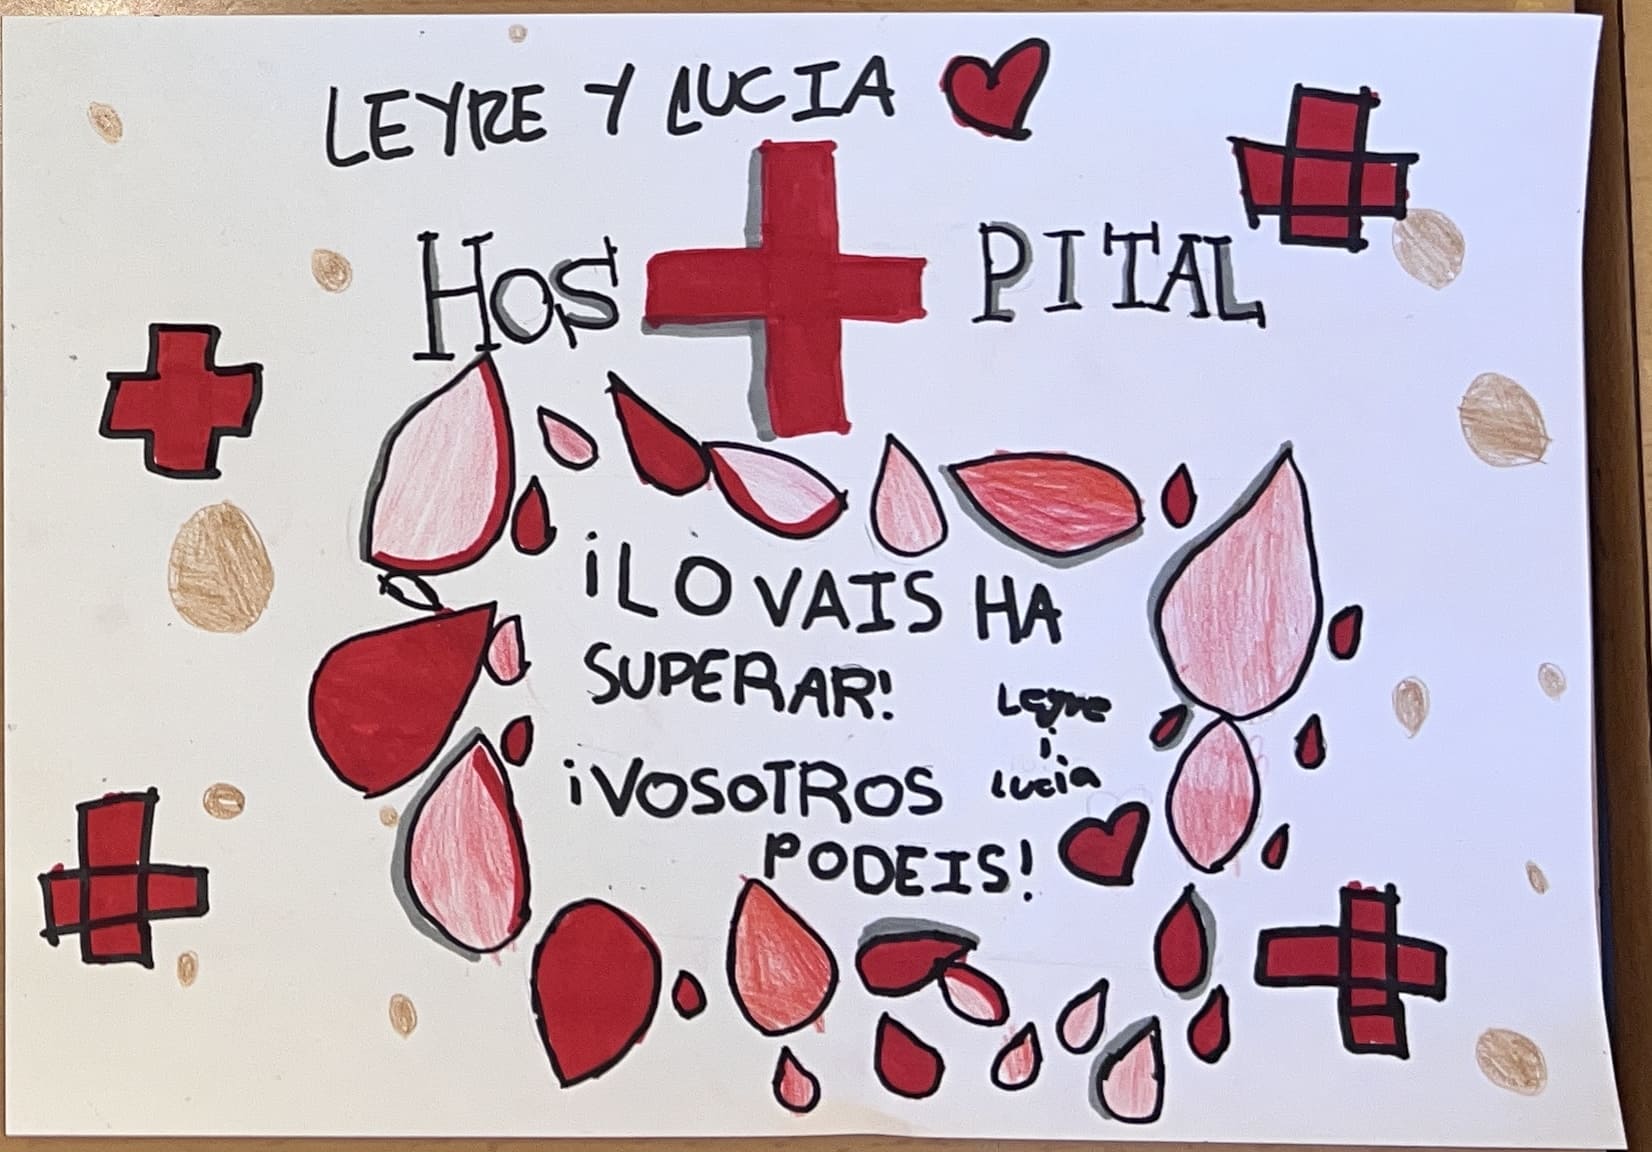 LEYRE Y LUCIA
HOS PITAL
¡LO VAIS HA
SUPERAR!
Leyre
i
Lucia
¡VOSOTROS
PODEIS!